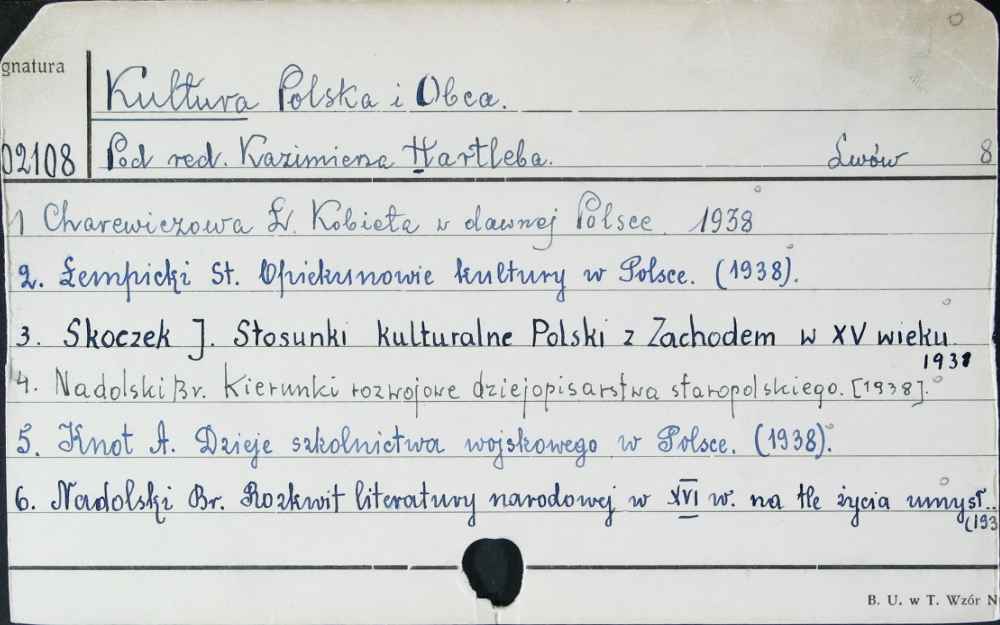 gnatura
Kultura Polska i Obca.
02108 Pod red. Kazimierza Hartleba. Lwów 8
1 Charewiczowa Ł. Kobieta w dawnej Polsce. 1938
2. Łempicki St. Opiekunowie kultury w Polsce. (1938).
3. Skoczek J. Stosunki kulturalne Polski z Zachodem w XV wieku.
1938
4. Nadolski Br. Kierunki rozwojowe dziejopisarstwa staropolskiego. [1938].
5. Knot A. Dzieje szkolnictwa wojskowego w Polsce. (1938).
6. Nadolski Br. Rozkwit literatury narodowej w XVI w. na tle życia umysł..
(193
B. U. w T. Wzór N